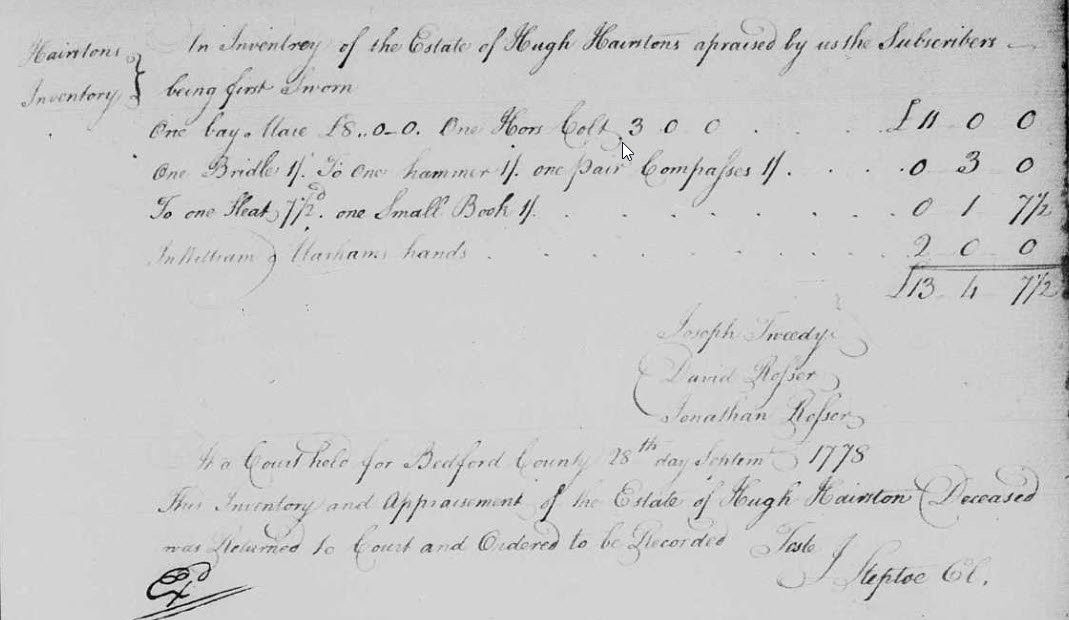 Hairstons
Inventory
In Inventrey of the Estate of Hugh Hairstons apraised by us the Subscribers
being first Sworn
One bay Mare £8..0-0. One Hors Colt, 3 0 0 £11 0 0
One Bridle 1/. To One hammer 1/. one pair Compasses 1/. 0 3 0
To one Sleat 7½d. one Small Book 1/. 0 1 7½
In William hands 2 0 0
£13 4 7½
Joseph Tweedy
David Rosser
Jonathan Rosser
At a Court held for Bedford County 28th day Septem 1778
This Inventory and Appraisement of the Estate of Hugh Hairston Deceased
was Returned to Court and Ordered to be Recorded Teste
J Steptoe Cl.
Exd